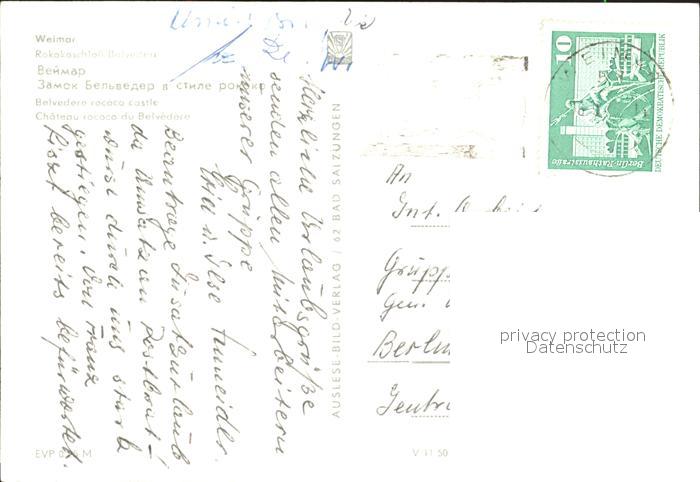 Weimar
Rokokoschloß Belvedere
Веймар
Замок Бельведер в стиле рококо
Belvedere rococo castle
Château rococo du Belvédère
Herzliche Urlaubsgrüße
senden allen Mitarbeitern
unserer Gruppe
u. Ilse
Beantrage Zusatzurlaub
da Umsatz an Postkart-
wurst durch uns stark
gestiegen. Von Franz
Liszt bereits befürwortet.
EVP 0,25 M
V 11 50
AUSLESE-BILD-VERLAG / 62 BAD SALZUNGEN
10
DEUTSCHE DEMOKRATISCHE REPUBLIK
Berlin-Rathausstraße
An
Int.
Grupp
Gen.
Berlin
Zentr
privacy protection
Datenschutz